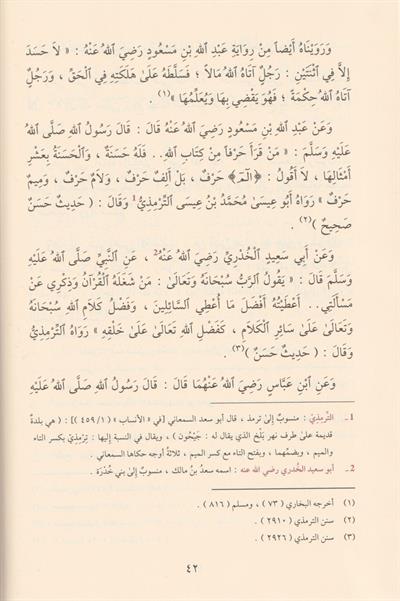 وَرَوَيْنَاهُ أَيْضاً مِنْ رِوَايَةِ عَبْدِ اللهِ بْنِ مَسْعُودٍ رَضِيَ اللهُ عَنْهُ : « لاَ حَسَدَ
إِلاَّ فِي ٱثْنَتَيْنِ : رَجُلٌ آتَاهُ اللهُ مَالاً ؛ فَسَلَّطَهُ عَلَىٰ هَلَكَتِهِ فِي الْحَقِّ ، وَرَجُلٌ
آتَاهُ اللهُ حِكْمَةً ؛ فَهُوَ يَقْضِي بِهَا وَيُعَلِّمُهَا »(١) .
وَعَنْ عَبْدِ اللهِ بْنِ مَسْعُودٍ رَضِيَ اللهُ عَنْهُ قَالَ : قَالَ رَسُولُ اللهِ صَلَّى اللهُ
عَلَيْهِ وَسَلَّمَ : « مَنْ قَرَأَ حَرْفاً مِنْ كِتَابِ اللهِ . . فَلَهُ حَسَنَةٌ ، وَٱلْحَسَنَةُ بِعَشْرِ
أَمْثَالِهَا ، لاَ أَقُولُ : ﴿الٓمٓ﴾ حَرْفٌ ، بَلْ أَلِفٌ حَرْفٌ ، وَلاَمٌ حَرْفٌ ، وَمِيمٌ
حَرْفٌ » رَوَاهُ أَبُو عِيسَىٰ مُحَمَّدُ بْنُ عِيسَى التِّرْمِذِيُّ1 وَقَالَ : ( حَدِيثٌ حَسَنٌ
صَحِيحٌ )(٢) .
وَعَنْ أَبِي سَعِيدٍ الْخُدْرِيِّ رَضِيَ اللهُ عَنْهُ2 ، عَنِ النَّبِيِّ صَلَّى اللهُ عَلَيْهِ
وَسَلَّمَ قَالَ : « يَقُولُ الرَّبُّ سُبْحَانَهُ وَتَعَالَىٰ : مَنْ شَغَلَهُ الْقُرْآنُ وَذِكْرِي عَنْ
مَسْأَلَتِي . . أَعْطَيْتُهُ أَفْضَلَ مَا أُعْطِي السَّائِلِينَ ، وَفَضْلُ كَلاَمِ اللهِ سُبْحَانَهُ
وَتَعَالَىٰ عَلَىٰ سَائِرِ الْكَلاَمِ ، كَفَضْلِ اللهِ تَعَالَىٰ عَلَىٰ خَلْقِهِ » رَوَاهُ التِّرْمِذِيُّ
وَقَالَ : ( حَدِيثٌ حَسَنٌ )(٣) .
وَعَنِ ابْنِ عَبَّاسٍ رَضِيَ اللهُ عَنْهُمَا قَالَ : قَالَ رَسُولُ اللهِ صَلَّى اللهُ عَلَيْهِ
1 ـ التِّرْمِذِيّ : منسوبٌ إلىٰ ترمذ ، قال أبو سعد السمعاني [في « الأنساب » ( ١/ ٤٥٩ )] : ( هي بلدةٌ
قديمة علىٰ طرف نهر بَلْخ الذي يقال له : جَيْحُون ) ، ويقال في النسبة إليها : تِرْمِذيّ بكسر التاء
والميم ، وبضمهما ، وبفتح التاء مع كسر الميم ، ثلاثة أوجه حكاها السمعاني .
2 ـ أبو سعيد الخُدري رضي الله عنه : اسمه سعدُ بنُ مالك ، منسوبٌ إلىٰ بني خُدْرَة .
(١) أخرجه البخاري ( ٧٣ ) ، ومسلم ( ٨١٦ ) .
(٢) سنن الترمذي ( ٢٩١٠ ) .
(٣) سنن الترمذي ( ٢٩٢٦ ) .
٤٢